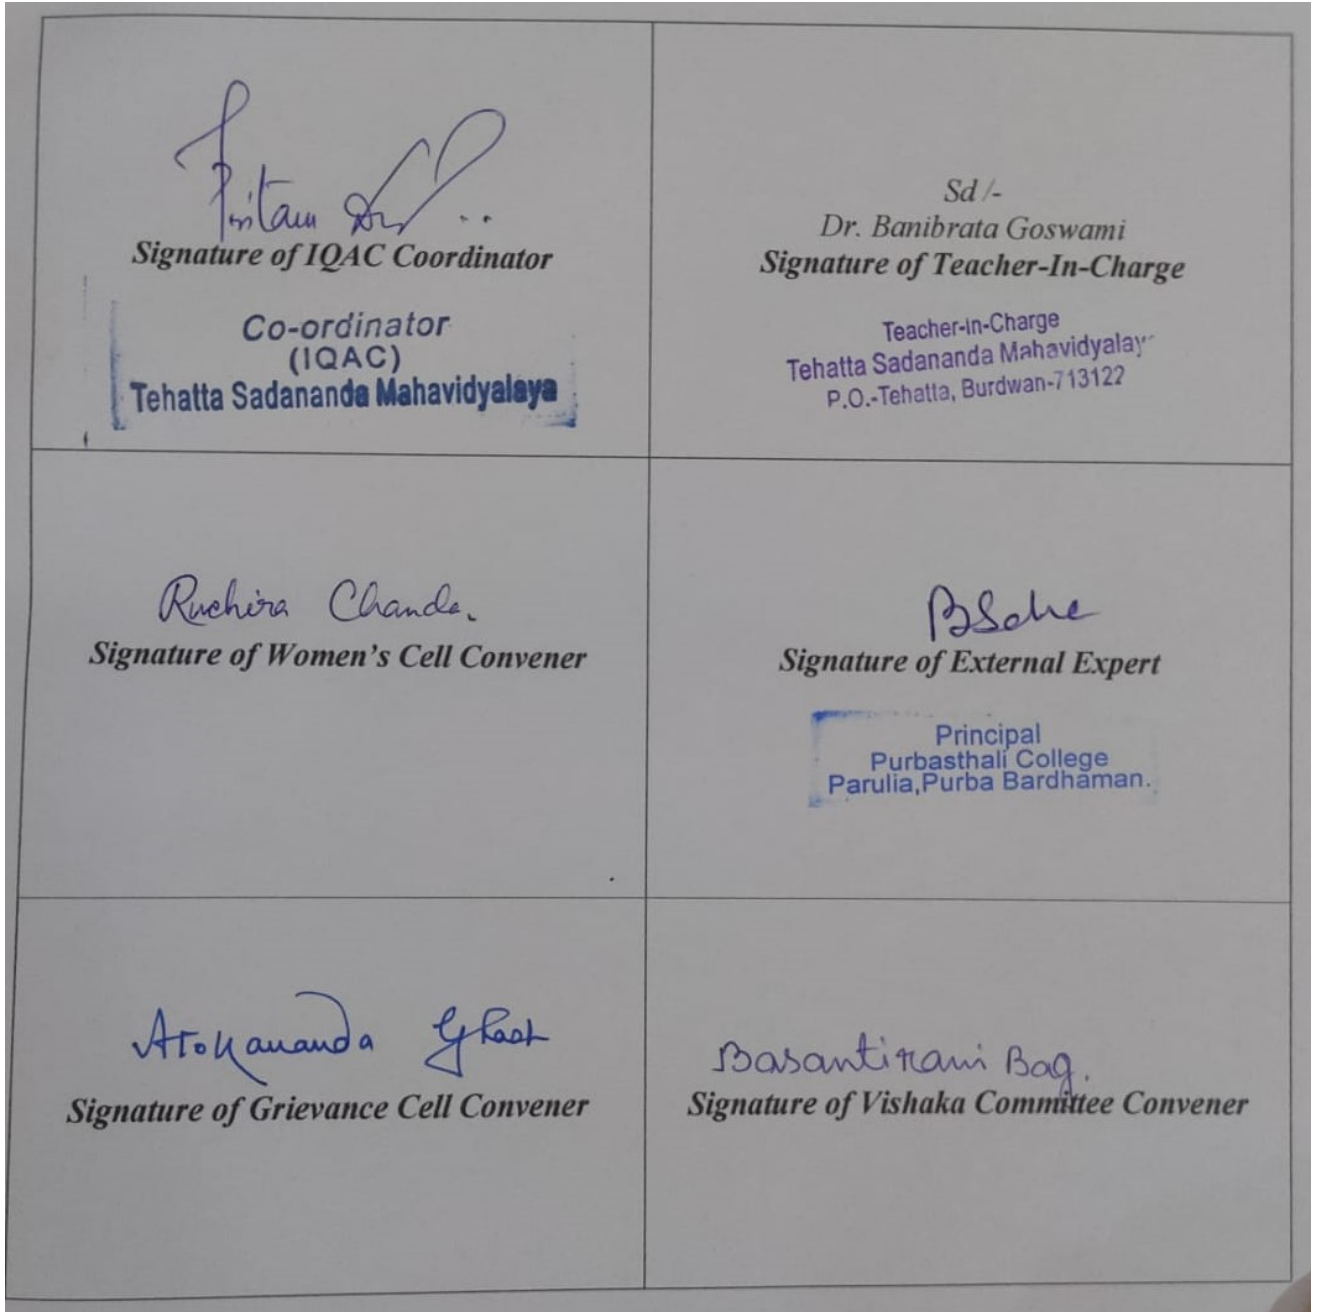 Pritam
Signature of IQAC Coordinator
Co-ordinator
(IQAC)
Tehatta Sadananda Mahavidyalaya
Sd /-
Dr. Banibrata Goswami
Signature of Teacher-In-Charge
Teacher-in-Charge
Tehatta Sadananda Mahavidyalay
P.O.-Tehatta, Burdwan-713122
Ruchira Chanda.
Signature of Women's Cell Convener
BSaha
Signature of External Expert
Principal
Purbasthali College
Parulia,Purba Bardhaman.
Ghosh
Signature of Grievance Cell Convener
Basantirani Bag.
Signature of Vishaka Committee Convener